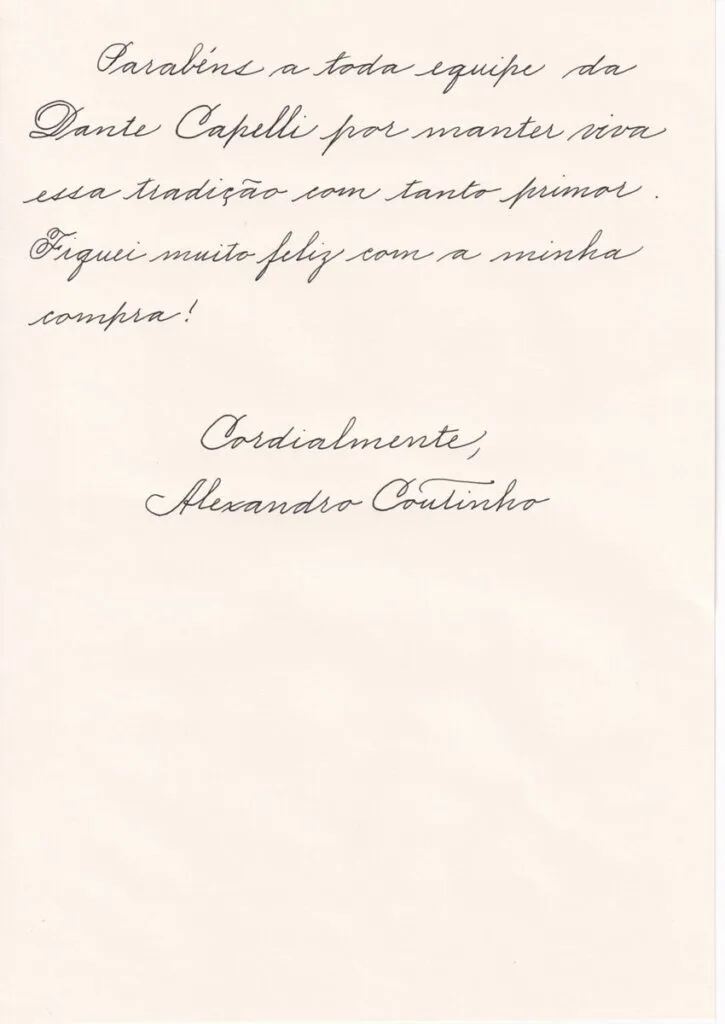 Parabéns a toda equipe da
Dante Capelli por manter viva
essa tradição com tanto primor.
Fiquei muito feliz com a minha
compra!
Cordialmente,
Alexandro Coutinho